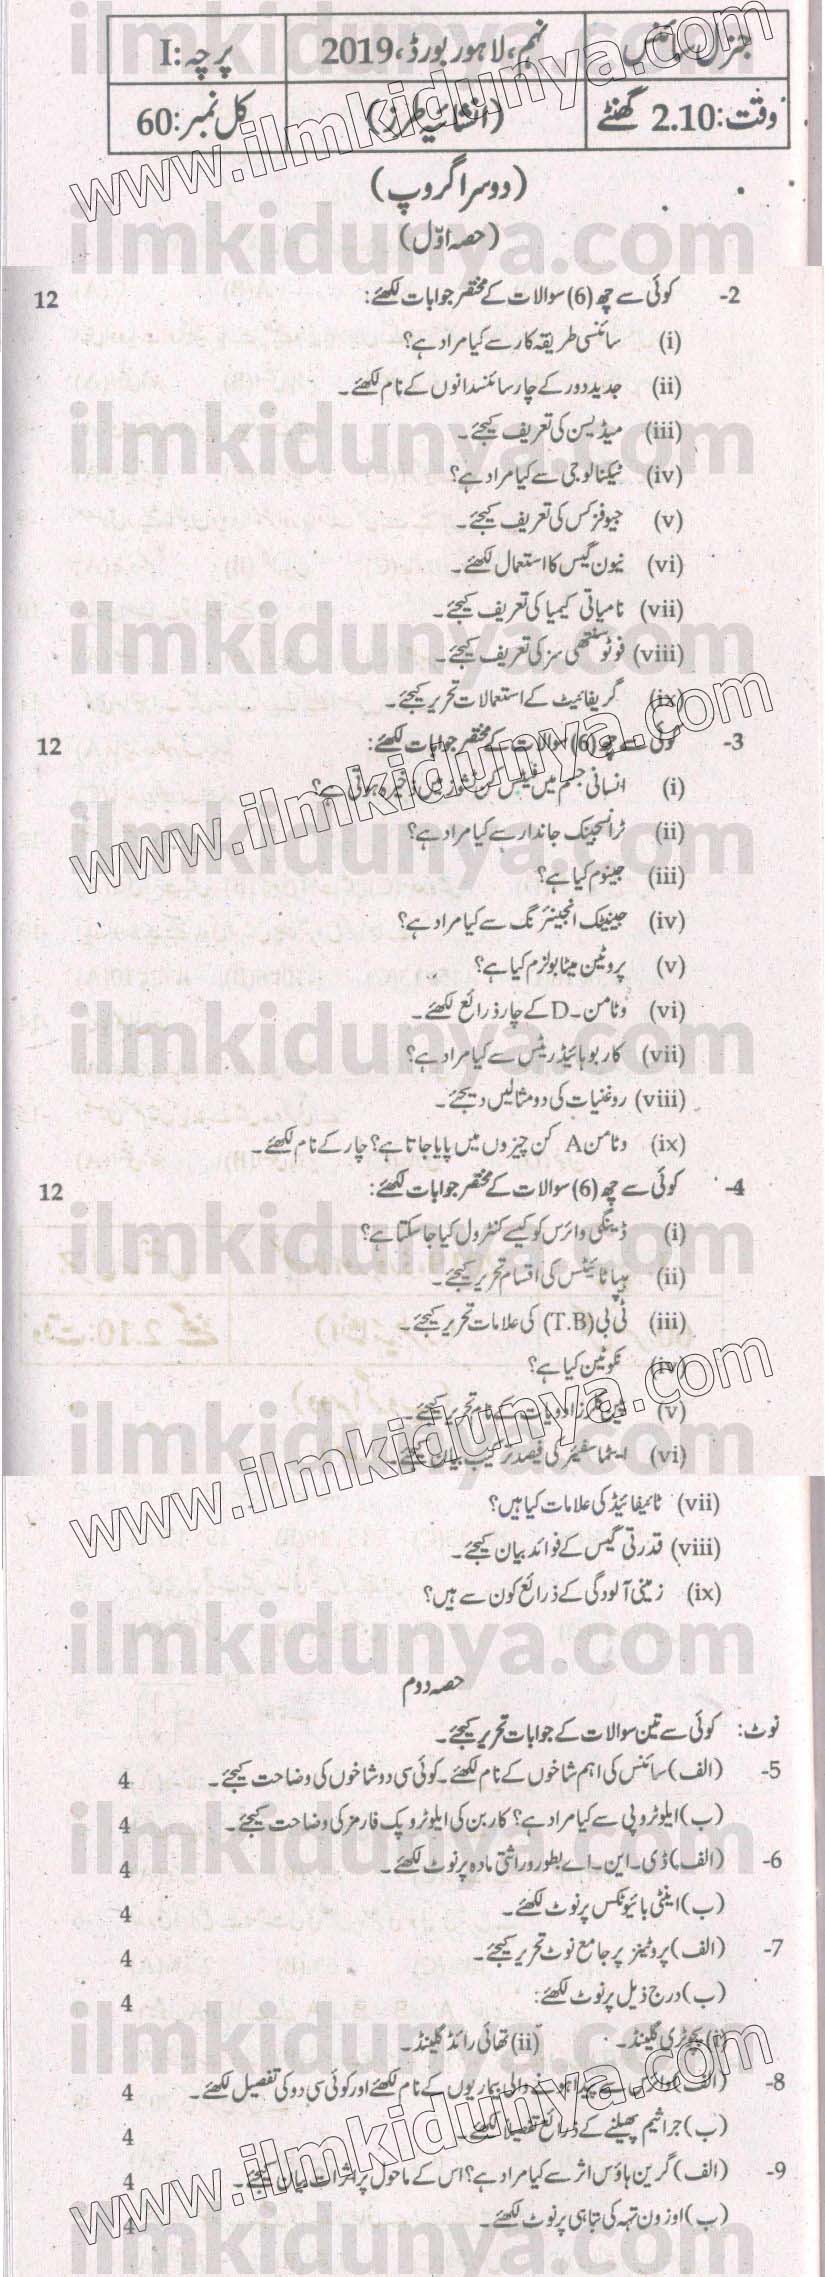 جنرل سائنس نہم، لاہور بورڈ، 2019 پرچہ: I
وقت: 2.10 گھنٹے (انشائیہ طرز) کل نمبر: 60
(دوسرا گروپ)
(حصہ اوّل)
2- کوئی سے چھ (6) سوالات کے مختصر جوابات لکھئے: 12
(i) سائنسی طریقہ کار سے کیا مراد ہے؟
(ii) جدید دور کے چار سائنسدانوں کے نام لکھئے۔
(iii) میڈیسن کی تعریف کیجئے۔
(iv) ٹیکنالوجی سے کیا مراد ہے؟
(v) جیوفزکس کی تعریف کیجئے۔
(vi) نیون گیس کا استعمال لکھئے۔
(vii) نامیاتی کیمیا کی تعریف کیجئے۔
(viii) فوٹو سنتھی سز کی تعریف کیجئے۔
(ix) گریفائیٹ کے استعمالات تحریر کیجئے۔
3- کوئی سے چھ (6) سوالات کے مختصر جوابات لکھئے: 12
(i) انسانی جسم میں فیٹس کن ٹشوز میں ذخیرہ ہوتی ہے؟
(ii) ٹرانسجینک جاندار سے کیا مراد ہے؟
(iii) جینوم کیا ہے؟
(iv) جینیٹک انجینئرنگ سے کیا مراد ہے؟
(v) پروٹین میٹابولزم کیا ہے؟
(vi) وٹامن۔D کے چار ذرائع لکھئے۔
(vii) کاربوہائیڈریٹس سے کیا مراد ہے؟
(viii) روغنیات کی دو مثالیں دیجئے۔
(ix) وٹامن A کن چیزوں میں پایا جاتا ہے؟ چار کے نام لکھئے۔
4- کوئی سے چھ (6) سوالات کے مختصر جوابات لکھئے: 12
(i) ڈینگی وائرس کو کیسے کنٹرول کیا جاسکتا ہے؟
(ii) ہیپاٹائیٹس کی اقسام تحریر کیجئے۔
(iii) ٹی بی (T.B) کی علامات تحریر کیجئے۔
(iv) نکوٹین کیا ہے؟
(v) ادویات کے نام تحریر کیجئے۔
(vi) ایٹماسفیئر کی فیصد ترکیب بیان کیجئے۔
(vii) ٹائیفائیڈ کی علامات کیا ہیں؟
(viii) قدرتی گیس کے فوائد بیان کیجئے۔
(ix) زمینی آلودگی کے ذرائع کون سے ہیں؟
حصہ دوم
نوٹ: کوئی سے تین سوالات کے جوابات تحریر کیجئے۔
5- (الف) سائنس کی اہم شاخوں کے نام لکھئے۔ کوئی سی دو شاخوں کی وضاحت کیجئے۔ 4
(ب) ایلوٹروپی سے کیا مراد ہے؟ کاربن کی ایلوٹروپک فارمز کی وضاحت کیجئے۔ 4
6- (الف) ڈی۔ این۔ اے بطور وراثتی مادہ پر نوٹ لکھئے۔ 4
(ب) اینٹی بائیوٹکس پر نوٹ لکھئے۔ 4
7- (الف) پروٹینز پر جامع نوٹ تحریر کیجئے۔ 4
(ب) درج ذیل پر نوٹ لکھئے: 4
(i) پچوٹری گلینڈ۔ (ii) تھائی رائڈ گلینڈ۔
8- (الف) وائرس سے پیدا ہونے والی بیماریوں کے نام لکھئے اور کوئی سی دو کی تفصیل لکھئے۔ 4
(ب) جراثیم پھیلنے کے ذرائع تفصیلاً لکھئے۔ 4
9- (الف) گرین ہاؤس اثر سے کیا مراد ہے؟ اس کے ماحول پر اثرات بیان کیجئے۔ 4
(ب) اوزون تہہ کی تباہی پر نوٹ لکھئے۔ 4
www.ilmkidunya.com
ilmkidunya.com